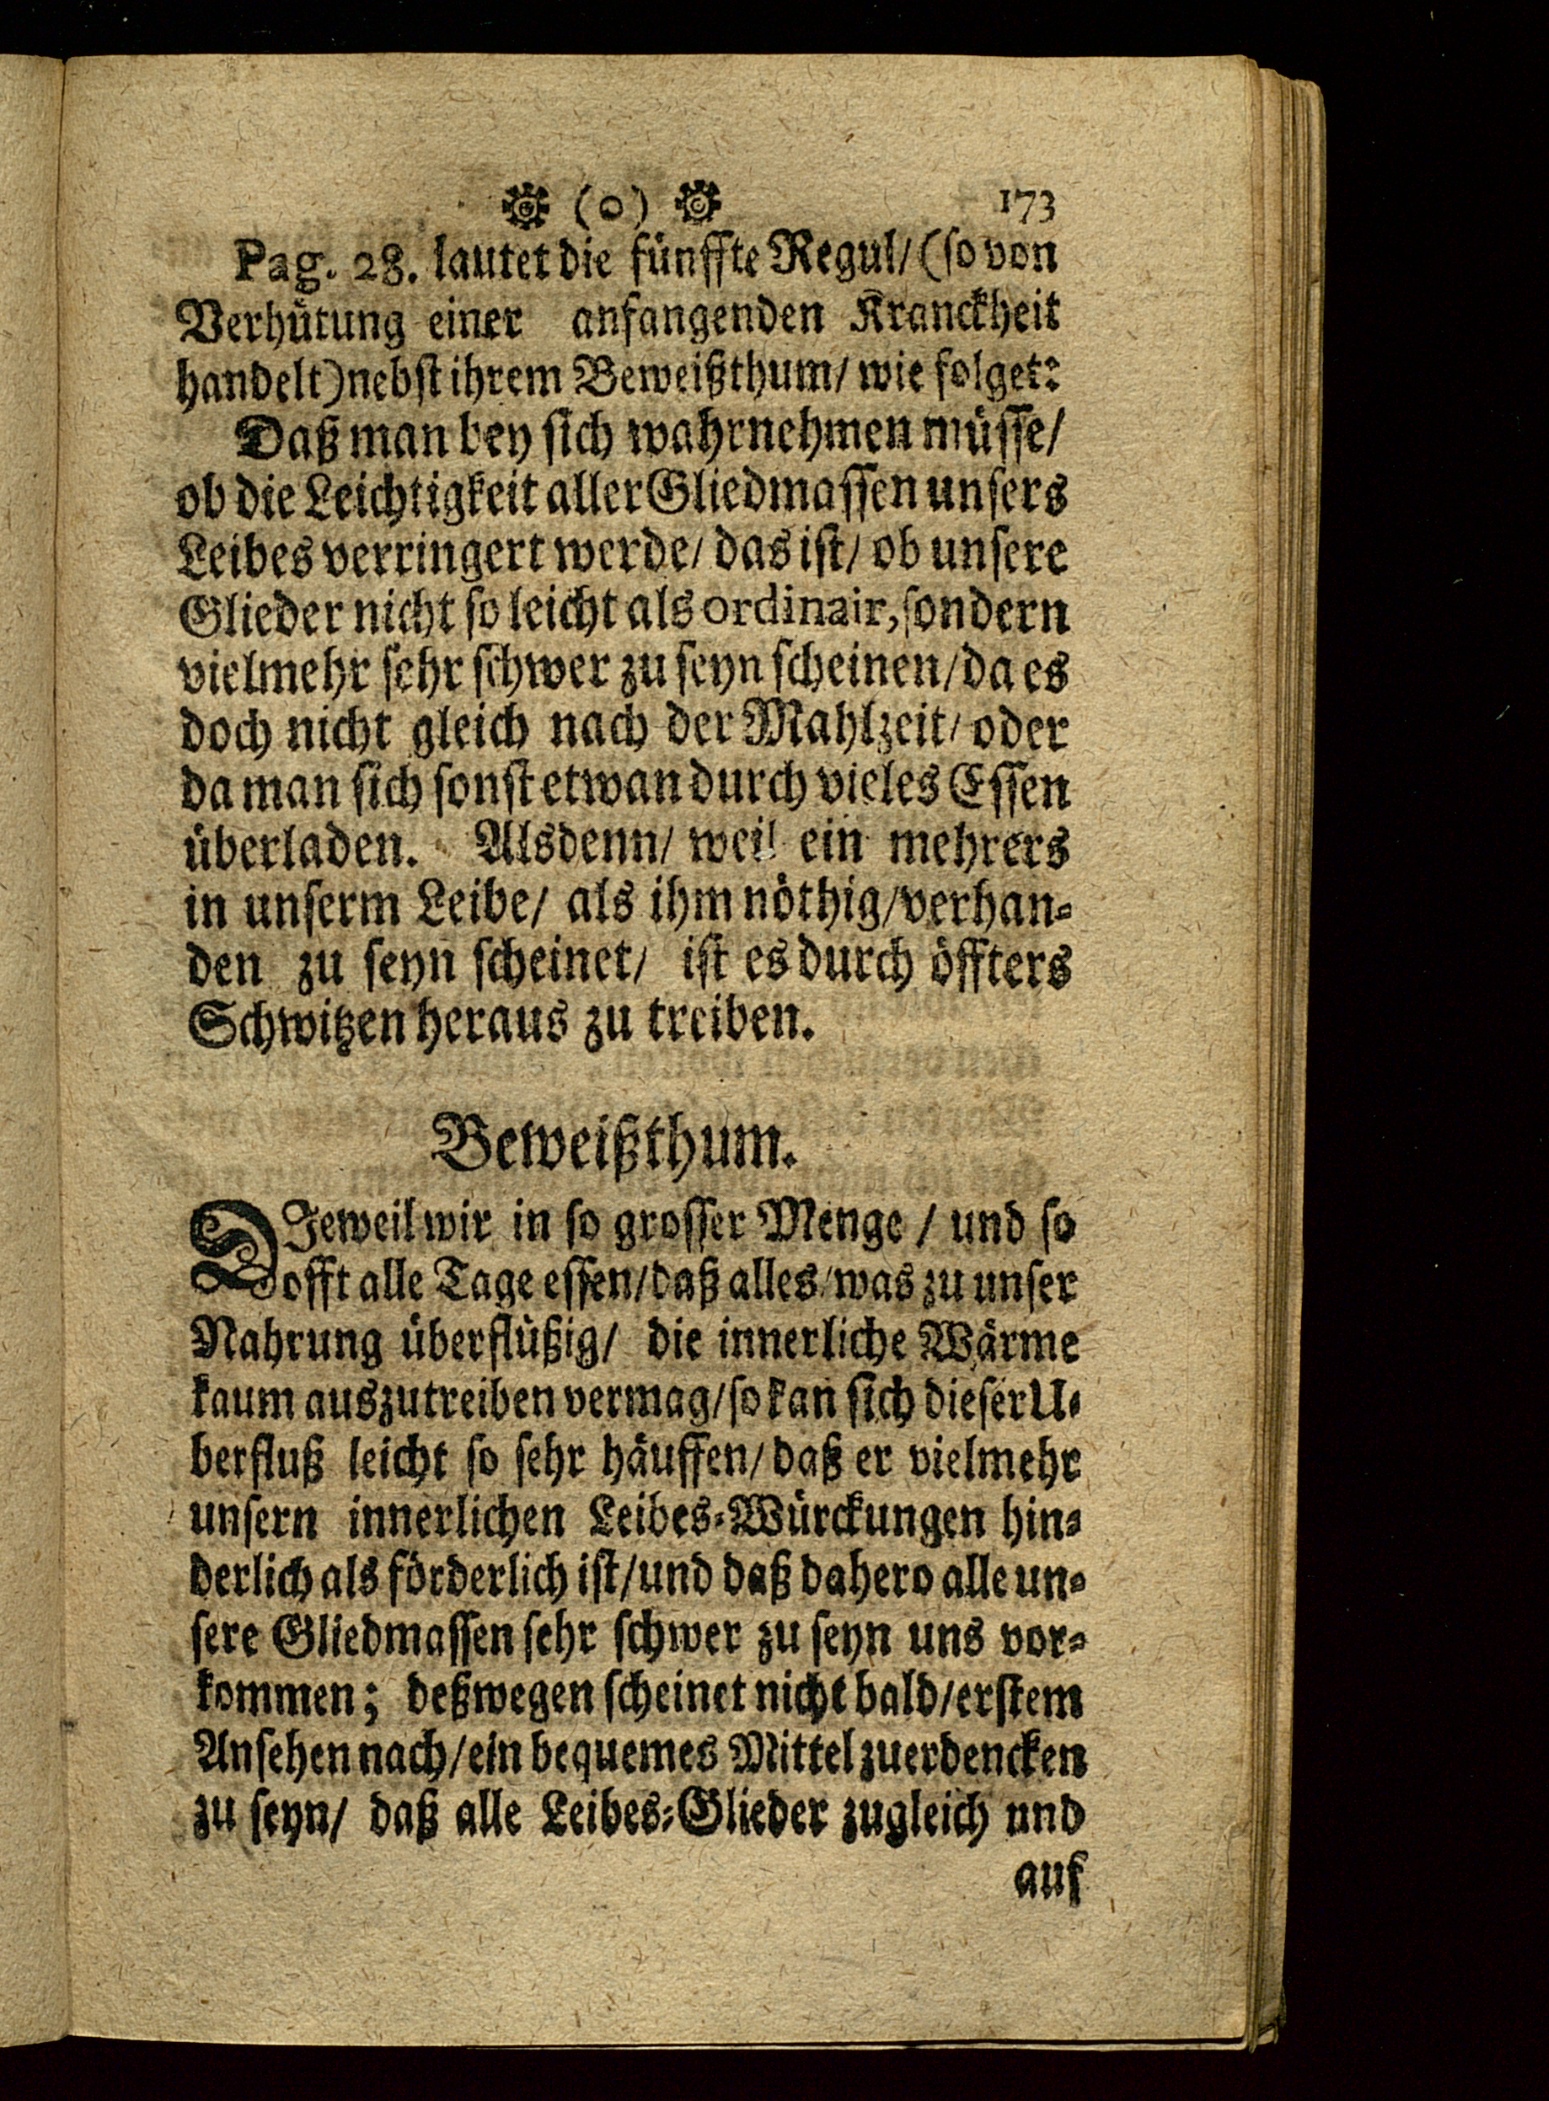 (o) 173
Pag. 28. lautet die fünffte Regul/ (so von
Verhütung einer anfangenden Kranckheit
handelt) nebst ihrem Beweißthum/ wie folget:
Daß man bey sich wahrnehmen müsse/
ob die Leichtigkeit aller Gliedmassen unsers
Leibes verringert werde/ das ist/ ob unsere
Glieder nicht so leicht als ordinair, sondern
vielmehr sehr schwer zu seyn scheinen/ da es
doch nicht gleich nach der Mahlzeit/ oder
da man sich sonst etwan durch vieles Essen
überladen. Alsdenn/ weil ein mehrers
in unserm Leibe/ als ihm nöthig/ verhan-
den zu seyn scheinet/ ist es durch öffters
Schwitzen heraus zu treiben.
Beweißthum.
DIeweil wir in so grosser Menge / und so
offt alle Tage essen/ daß alles/ was zu unser
Nahrung überflüßig/ die innerliche Wärme
kaum auszutreiben vermag/ so kan sich dieser U-
berfluß leicht so sehr häuffen/ daß er vielmehr
unsern innerlichen Leibes-Würckungen hin-
derlich als förderlich ist/ und daß dahero alle un-
sere Gliedmassen sehr schwer zu seyn uns vor-
kommen; deßwegen scheinet nicht bald/ erstem
Ansehen nach/ ein bequemes Mittel zuerdencken
zu seyn/ daß alle Leibes-Glieder zugleich und
auf